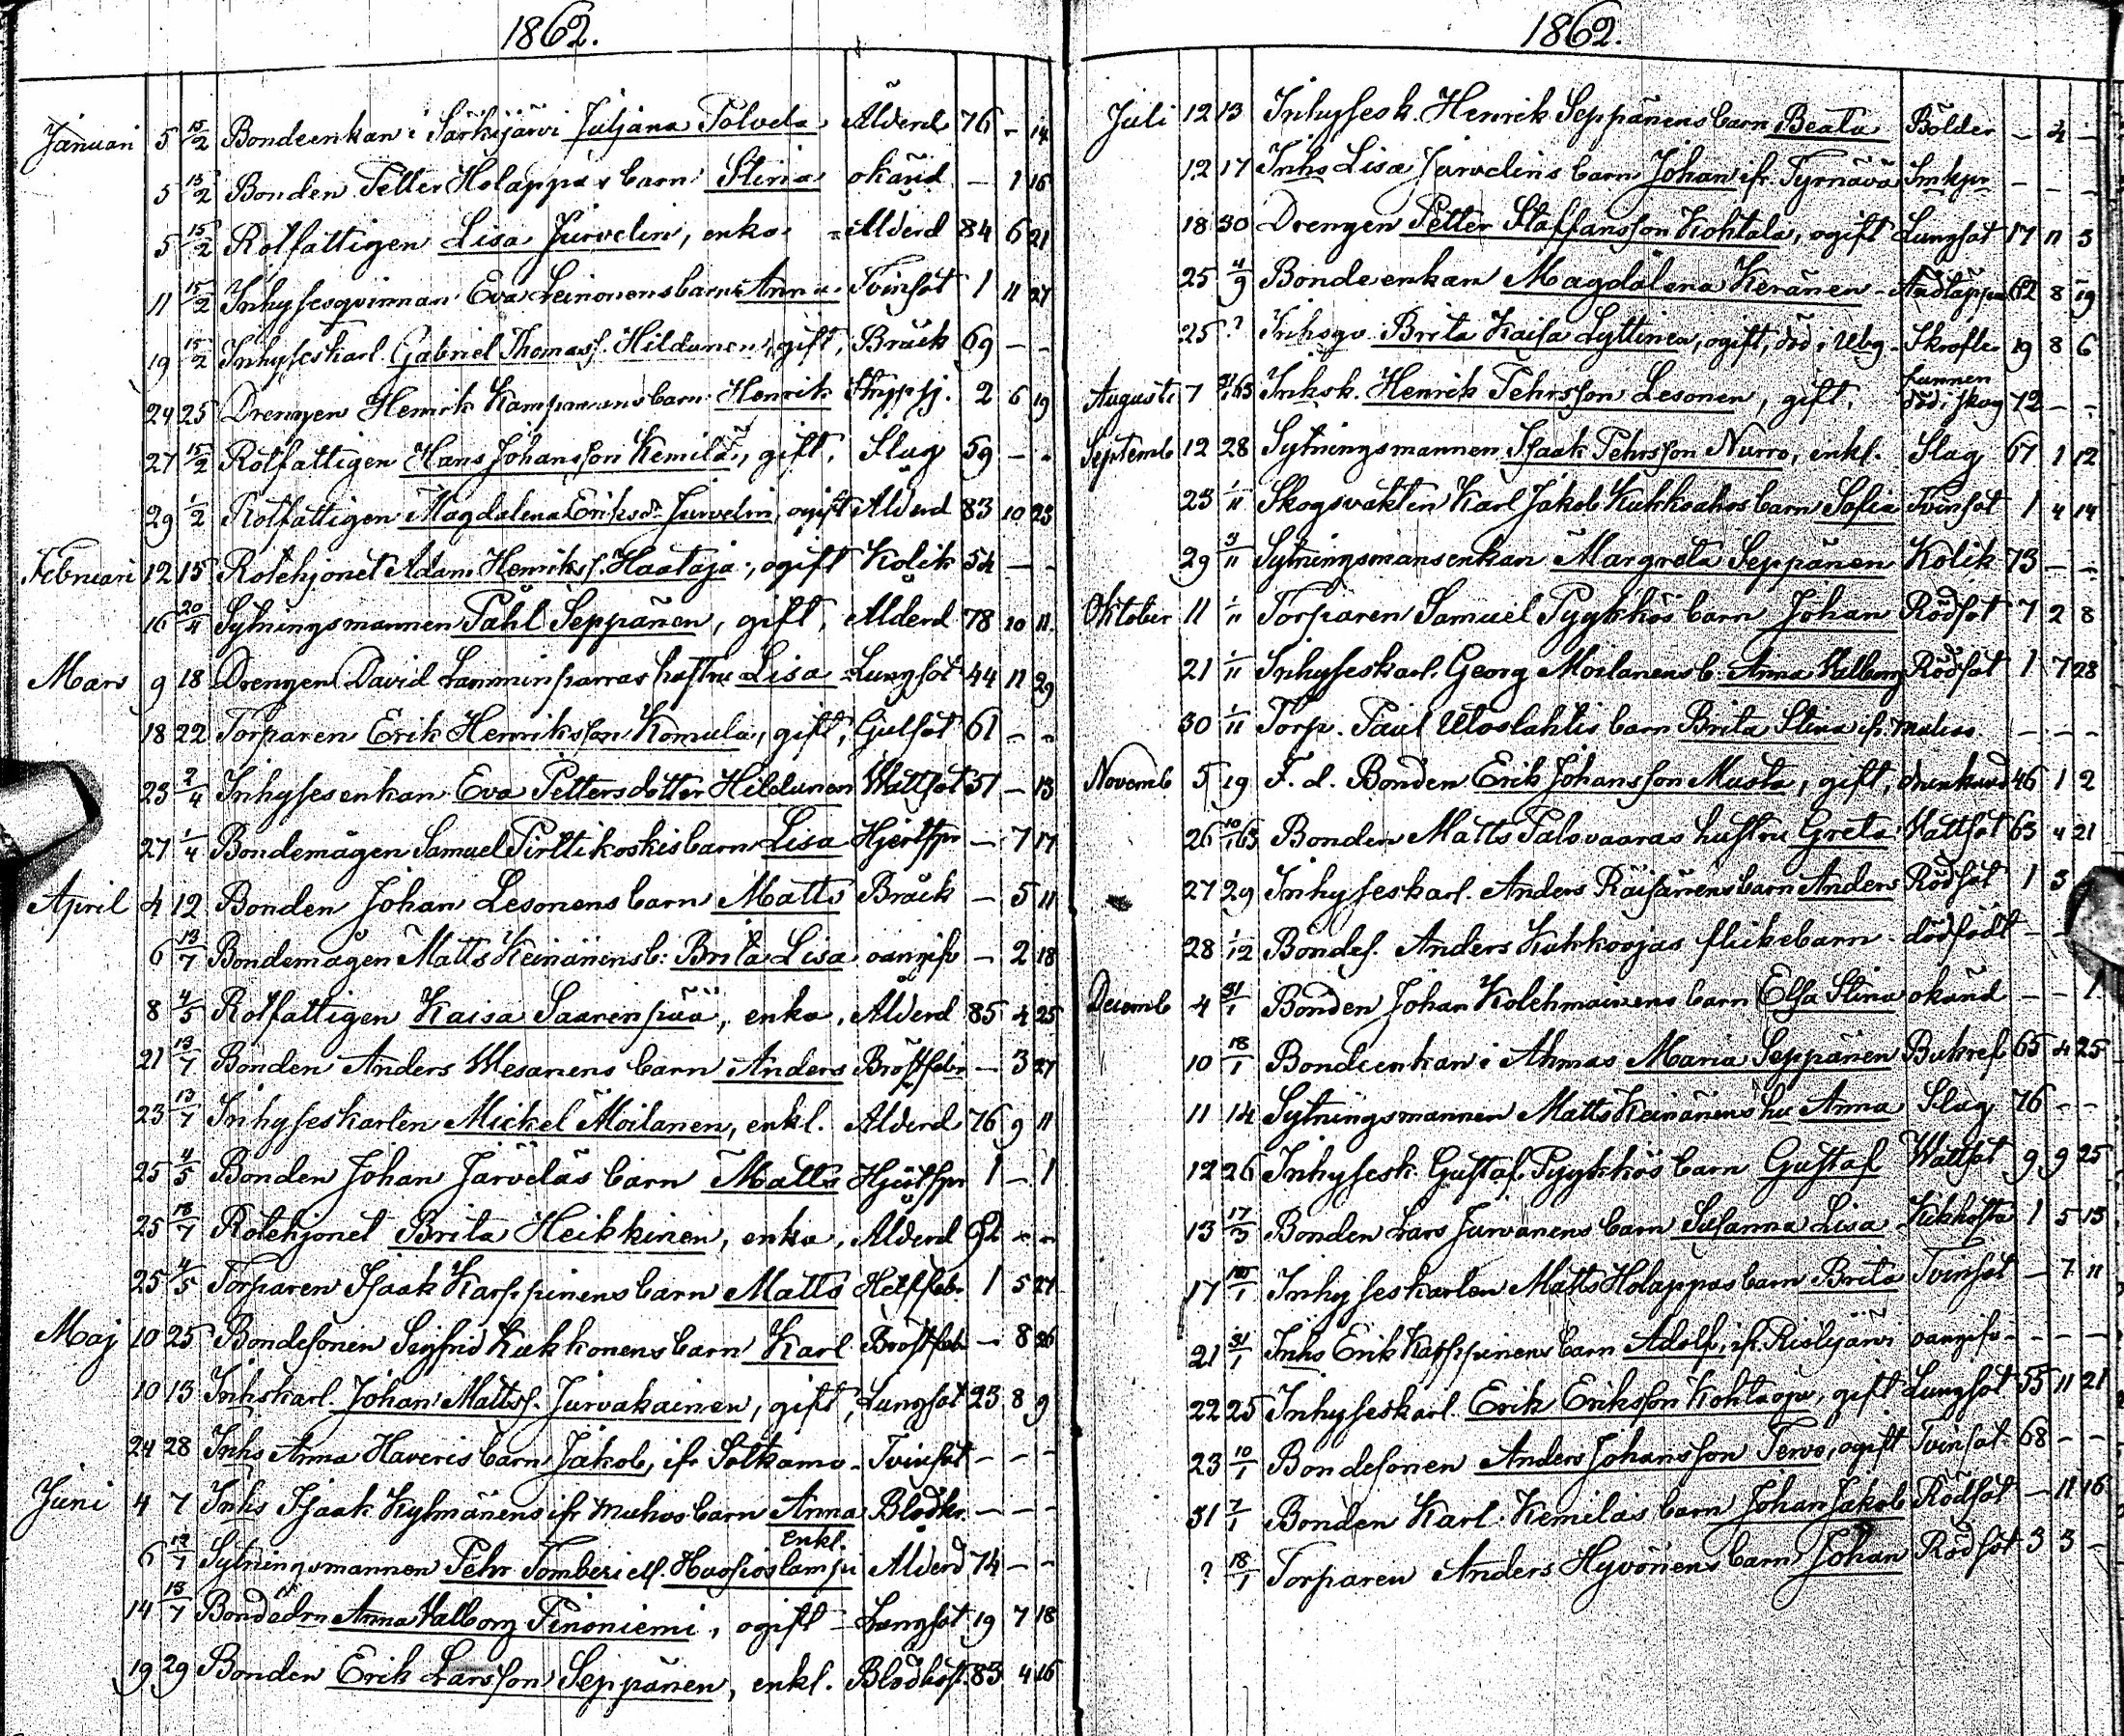 1862.
Januari 5 15/2 Bondeenkan i Särkijärvi Juljana Tolvela Ålderd 76 - 14
5 15/2 Bonden Petter Holappas barn Stina okänd — 1 16
5 15/2 Rotfattigen Lisa Jurvelin, enka - Ålderd 84 6 21
11 15/2 Inhysesqvinnan Eva Leinonens barn Anna Tvinsot 1 11 27
19 15/2 Inhyseskarl. Gabriel Thomass. Hildunen, gift, Bråck 69 — -
24 25 Drengen Henrik Kampmans barn Henrik Strypsj. 2 6 19
27 15/2 Rotfattigen Hans Johansson Kemilä, gift, Slag 59 - -
29 1/2 Rotfattigen Magdalena Eriksdr Jurvelin, ogift Ålderd 83 10 23
Februari 12 15 Rotehjonet Adam Henrikss. Haataja, ogift Kolik 54 — -
16 20/4 Sytningsmannen Påhl Seppänen, gift, Ålderd 78 10 11
Mars 9 18 Drengen David Lamminparras hustru Lisa - Lungsot 44 11 29
18 22 Torparen Erik Henriksson Komula, gift, Gulsot 61 - -
23 2/4 Inhysesenkan Eva Pettersdotter Hildunen Wattsot 51 - 13
27 1/4 Bondemågen Samuel Pirttikoskis barn Lisa Hjertspr — 7 17
April 4 12 Bonden Johan Lesonens barn Matts Bråck — 5 11
6 13/7 Bondemågen Matts Keinänens b: Brita Lisa oangifv — 2 18
8 4/5 Rotfattigen Kaisa Saarenpää, enka, Ålderd 85 4 25
21 13/7 Bonden Anders Wesanens barn Anders Bröstfeber — 3 27
23 13/7 Inhyseskarlen Mickel Moilanen, enkl. Ålderd 76 9 11
25 4/5 Bonden Johan Järveläs barn Matts Hjertspr 1 - 1
25 18/7 Rotehjonet Brita Heikkinen, enka, Ålderd - -
25 4/5 Torparen Isaak Karppinens barn Matts Hetsfeb. 1 5 27
Maj 10 25 Bondesonen Sigfrid Kukkonens barn Karl Bröstfeb — 8 26
10 13 Inhskarl. Johan Mattss. Jurvakainen, gift, Lungsot 23 8 9
24 28 Inhs Anna Haveris barn Jakob, ifr Sotkamo - Tvinsot — - -
Juni 4 7 Inhs Isaak Kylmänens ifr Muhos barn Anna Blodkr. — - -
enkl.
6 13/7 Sytningsmannen Pehr Tomberi ell. Huosioslampi Ålderd 74 — -
14 13/7 Bondedrn Anna Valborg Pinoniemi, ogift - Lungsot 19 7 18
19 29 Bonden Erik Larsson Seppänen, enkl. Blodhost. 83 4 16
1862.
Juli 12 13 Inhysesk. Henrik Seppänens barn Beata Bölder — 4 —
12 17 Inhs Lisa Jurvelins barn Johan ifr. Tyrnävä Smkpr — — —
18 30 Drengen Petter Staffansson Kohtala, ogift Lungsot 17 11 3
25 4/9 Bondeenkan Magdalena Keränen - Andtäppa 62 8 19
25 ? Inhsqv. Brita Kaisa Lyttinen, ogift, död i Ubg - Skrofler 19 8 6
Augusti 7 Inhsk. Henrik Pehrsson Lesonen, gift, funnen död i skog 72 — -
Septemb 12 28 Sytningsmannen Isaak Pehrsson Nurro, enkl. Slag 67 1 12
23 1/11 Skogsvakten Karl Jakob Kukkoahos barn Sofia Tvinsot 1 4 14
29 3/11 Sytningsmansenkan Margreta Seppänen Kolik 73 — -
Oktober 11 1/11 Torparen Samuel Pyykkös barn Johan Rödsot 7 2 8
21 1/11 Inhyseskarl. Georg Moilanens b. Anna Valborg Rödsot 1 7 28
30 1/11 Torp. Paul Utoslahtis barn Brita Stina ifr. — - -
Novemb 5 19 F. d. Bonden Erik Johansson Musta, gift, drunknad 46 1 2
26 10/1 63 Bonden Matts Palovaaras hustru Greta Vattsot 63 4 21
27 29 Inhyseskarl. Anders Räisänens barn Anders Rödsot 1 3
28 1/12 Bondes. Anders Kukkoojas flickebarn - dödfödt - -
Decemb 4 31/1 Bonden Johan Kolehmainens barn Elsa Stina okänd — - 1
10 18/1 Bondeenkan i Ahmas Maria Seppänen Bukref 65 4 25
11 14 Sytningsmannen Matts Keinänens hu Anna Slag 76 - -
12 26 Inhysesk. Gustaf Pyykkös barn Gustaf Wattsot 9 9 25
13 17/3 Bonden Lars Jurvanens barn Susanna Lisa Kikhosta 1 5 13
17 Inhyseskarlen Matts Holappas barn Brita Tvinsot — 7 11
21 31/1 Inhs Erik Karppinens barn Adolf, ifr. Ristijärvi oangifv - - -
22 25 Inhyseskarl. Erik Eriksson Kohtaoja, gift Lungsot 55 11 21
23 10/1 Bondesonen Anders Johansson Tervo, ogift Tvinsot 68 - -
31 7/1 Bonden Karl Kemiläs barn Johan Jakob Rödsot — 11 16
? 18/1 Torparen Anders Hyvönens barn Johan Rödsot 3 3 -